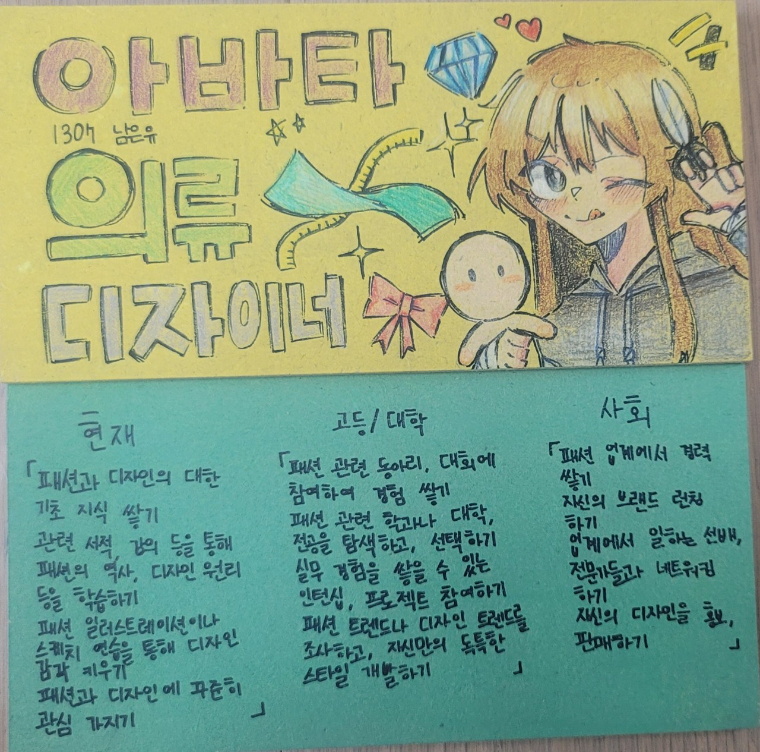 아바타
1307 남은유
의류
디자이너
현재
「패션과 디자인의 대한
기초 지식 쌓기
관련 서적, 강의 등을 통해
패션의 역사, 디자인 원리
등을 학습하기
패션 일러스트레이션이나
스케치 연습을 통해 디자인
감각 키우기
패션과 디자인에 꾸준히
관심 가지기 」
고등/대학
「패션 관련 동아리, 대회에
참여하여 경험 쌓기
패션 관련 학과나 대학,
전공을 탐색하고, 선택하기
실무 경험을 쌓을 수 있는
인턴십, 프로젝트 참여하기
패션 트렌드나 디자인 트렌드를
조사하고, 자신만의 독특한
스타일 개발하기 」
사회
「패션 업계에서 경력
쌓기
자신의 브랜드 런칭
하기
업계에서 일하는 선배,
전문가들과 네트워킹
하기
자신의 디자인을 홍보,
판매하기 」